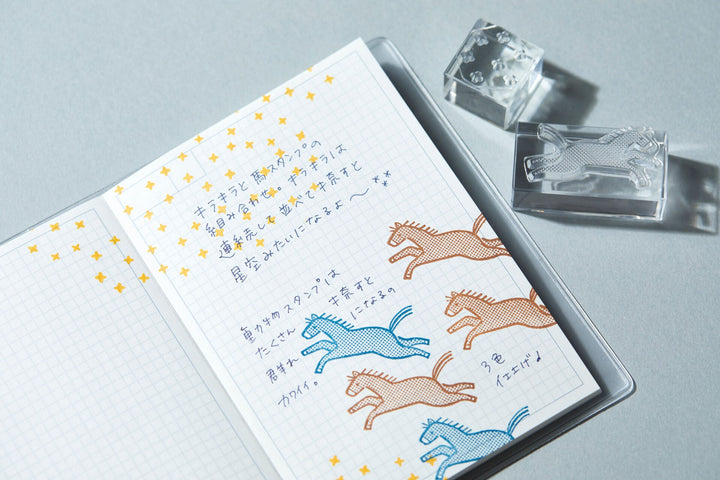 キラキラと馬スタンプの
組み合わせ。キラキラは
連続して並べて捺すと
星空みたいになるよ〜**
動物スタンプは
たくさん捺すと
群れになるの
カワイイ。
3色
仕上げ♪